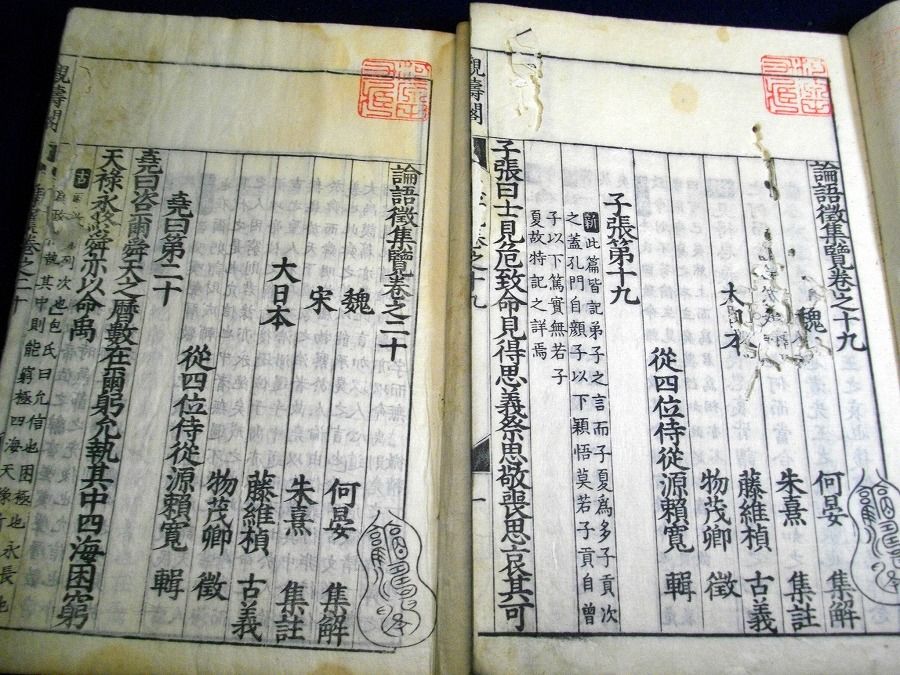 論語徵集覽卷之十九
魏
何晏 集解
朱熹 集註
大日本
藤維楨 古義
物茂卿 徵
從四位侍從源賴寬 輯
子張第十九
新 此篇皆記弟子之言而子夏爲多子貢次
之蓋孔門自顏子以下穎悟莫若子貢自曾
子以下篤實無若子
夏故特記之詳焉
子張曰士見危致命見得思義祭思敬喪思哀其可
觀濤閣
論語徵集覽卷之二十
魏
何晏 集解
宋
朱熹 集註
大日本
藤維楨 古義
物茂卿 徵
從四位侍從源賴寬 輯
堯曰第二十
堯曰咨爾舜天之曆數在爾躬允執其中四海困窮
天祿永終舜亦以命禹
古
次也包氏曰允信也困極也永長也
其中則能窮極四海天
觀濤閣
卷之二十